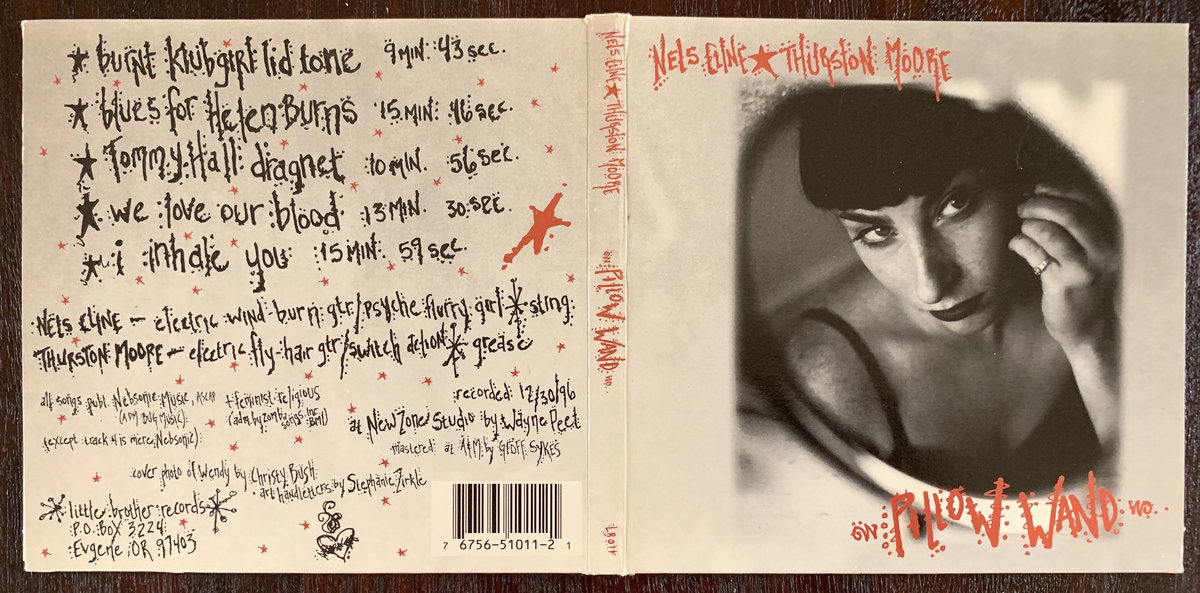 burnt klubgirl lid tone 9 MIN: 43 sec.
blues for Helen Burns 15 MIN: 46 sec.
Tommy Hall dragnet 10 MIN. 56 sec.
we love our blood 13 MIN. 30 sec.
i inhale you 15 MIN: 59 sec.
NELS CLINE — electric wind-burn gtr/psyche flurry girl * sting
THURSTON MOORE — electric fly-hair gtr/switch action * grease
all songs publ. Nebsonic Music, ASCAP
(ADM. BUG MUSIC):
(except track 4 is mere Nebsonic):
+ feminist religious
(adm. by zomba songs inc. BMI)
recorded: 12/30/96
at New Zone Studio by Wayne Peet
mastered: at A+M by GEOFF SYKES
cover photo of Wendy by Christy Bush
art handletters: by Stephanie Zirkle
little brother records
P.O. BOX 3224
Eugene, OR 97403
7 6756-51011-2 1
NELS CLINE ★ THURSTON MOORE
PILLOW WAND
NELS CLINE ★ THURSTON MOORE
PILLOW WAND